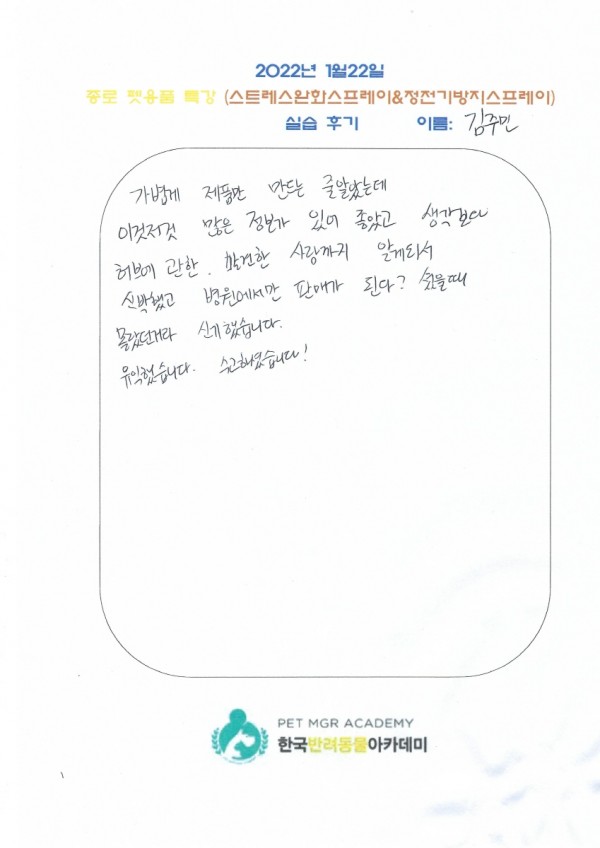 2022년 1월22일
종로 펫용품 특강 (스트레스완화스프레이&정전기방지스프레이)
실습 후기 이름: 김주민
가볍게 제품만 만드는 줄알았는데
이것저것 많은 정보가 있어 좋았고 생각보다
허브에 관한. 발견한 사람까지 알게되서
신박했고 병원에서만 판매가 된다?
몰랐던거라 신기했습니다.
유익했습니다. 수고하셨습니다!
PET MGR ACADEMY
한국반려동물아카데미